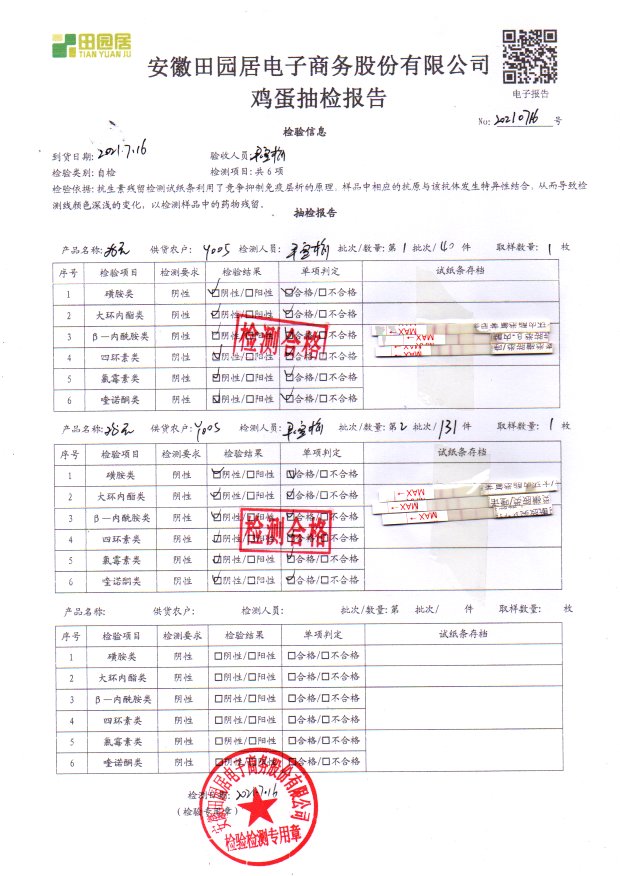 田园居
TIAN YUAN JU
安徽田园居电子商务股份有限公司
鸡蛋抽检报告
电子报告
No: 20210716 号
检验信息
到货日期: 2021.7.16 验收人员:
检验类别: 自检 检测项目: 共 6 项
检验依据: 抗生素残留检测试纸条利用了竞争抑制免疫层析的原理。样品中相应的抗原与该抗体发生特异性结合。从而导致检
测线颜色深浅的变化，以检测样品中的药物残留。
抽检报告
产品名称: 供货农户: Y005 检测人员: 批次/数量: 第 1 批次/ 40 件 取样数量: 1 枚
序号 检验项目 检测要求 检验结果 单项判定 试纸条存档
1 磺胺类 阴性 ☑阴性/□阳性 ☑合格/□不合格
2 大环内酯类 阴性 ☑阴性/□阳性 ☑合格/□不合格
3 β—内酰胺类 阴性 ☑阴性/□阳性 ☑合格/□不合格
4 四环素类 阴性 ☑阴性/□阳性 ☑合格/□不合格
5 氯霉素类 阴性 ☑阴性/□阳性 ☑合格/□不合格
6 喹诺酮类 阴性 ☑阴性/□阳性 ☑合格/□不合格
检测合格
MAX
MAX
MAX
产品名称: 供货农户: Y005 检测人员: 批次/数量: 第 2 批次/ 131 件 取样数量: 1 枚
序号 检验项目 检测要求 检验结果 单项判定 试纸条存档
1 磺胺类 阴性 ☑阴性/□阳性 ☑合格/□不合格
2 大环内酯类 阴性 ☑阴性/□阳性 ☑合格/□不合格
3 β—内酰胺类 阴性 ☑阴性/□阳性 ☑合格/□不合格
4 四环素类 阴性 ☑阴性/□阳性 ☑合格/□不合格
5 氯霉素类 阴性 ☑阴性/□阳性 ☑合格/□不合格
6 喹诺酮类 阴性 ☑阴性/□阳性 ☑合格/□不合格
检测合格
MAX
MAX
MAX
产品名称: 供货农户: 检测人员: 批次/数量: 第 批次/ 件 取样数量: 枚
序号 检验项目 检测要求 检验结果 单项判定 试纸条存档
1 磺胺类 阴性 □阴性/□阳性 □合格/□不合格
2 大环内酯类 阴性 □阴性/□阳性 □合格/□不合格
3 β—内酰胺类 阴性 □阴性/□阳性 □合格/□不合格
4 四环素类 阴性 □阴性/□阳性 □合格/□不合格
5 氯霉素类 阴性 □阴性/□阳性 □合格/□不合格
6 喹诺酮类 阴性 □阴性/□阳性 □合格/□不合格
检测日期: 2021.7.16
(检验专用章)
安徽田园居电子商务股份有限公司
检验检测专用章